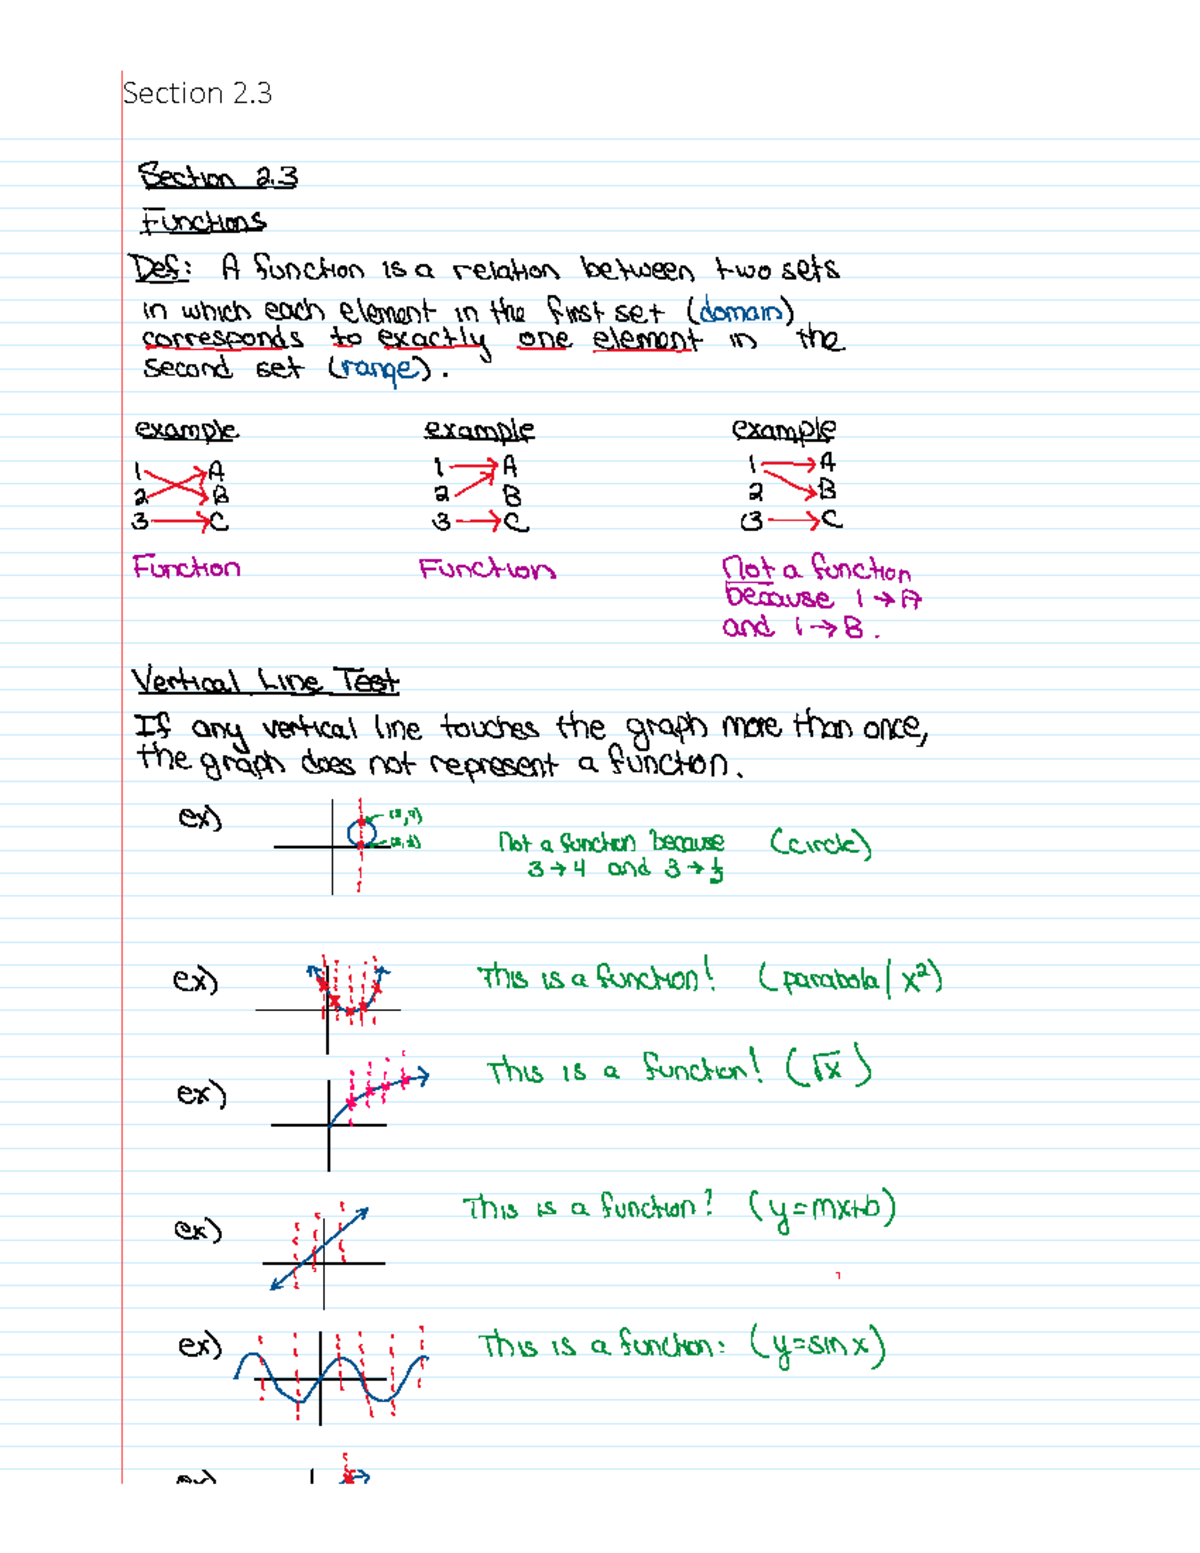 Section 2.3
Section 2.3
Functions
Def: A function is a relation between two sets
in which each element in the first set (domain)
corresponds to exactly one element in the
second set (range).
example example example
1 A 1 A 1 A
2 B 2 B 2 B
3 C 3 C 3 C
Function Function Not a function
because 1 → A
and 1 → B.
Vertical Line Test
If any vertical line touches the graph more than once,
the graph does not represent a function.
ex)
Not a function because (circle)
3 → 4 and 3 →
ex) This is a function! (parabola / x²)
ex) This is a function! (√x)
ex) This is a function! (y=mx+b)
ex) This is a function: (y=sin x)
ex)